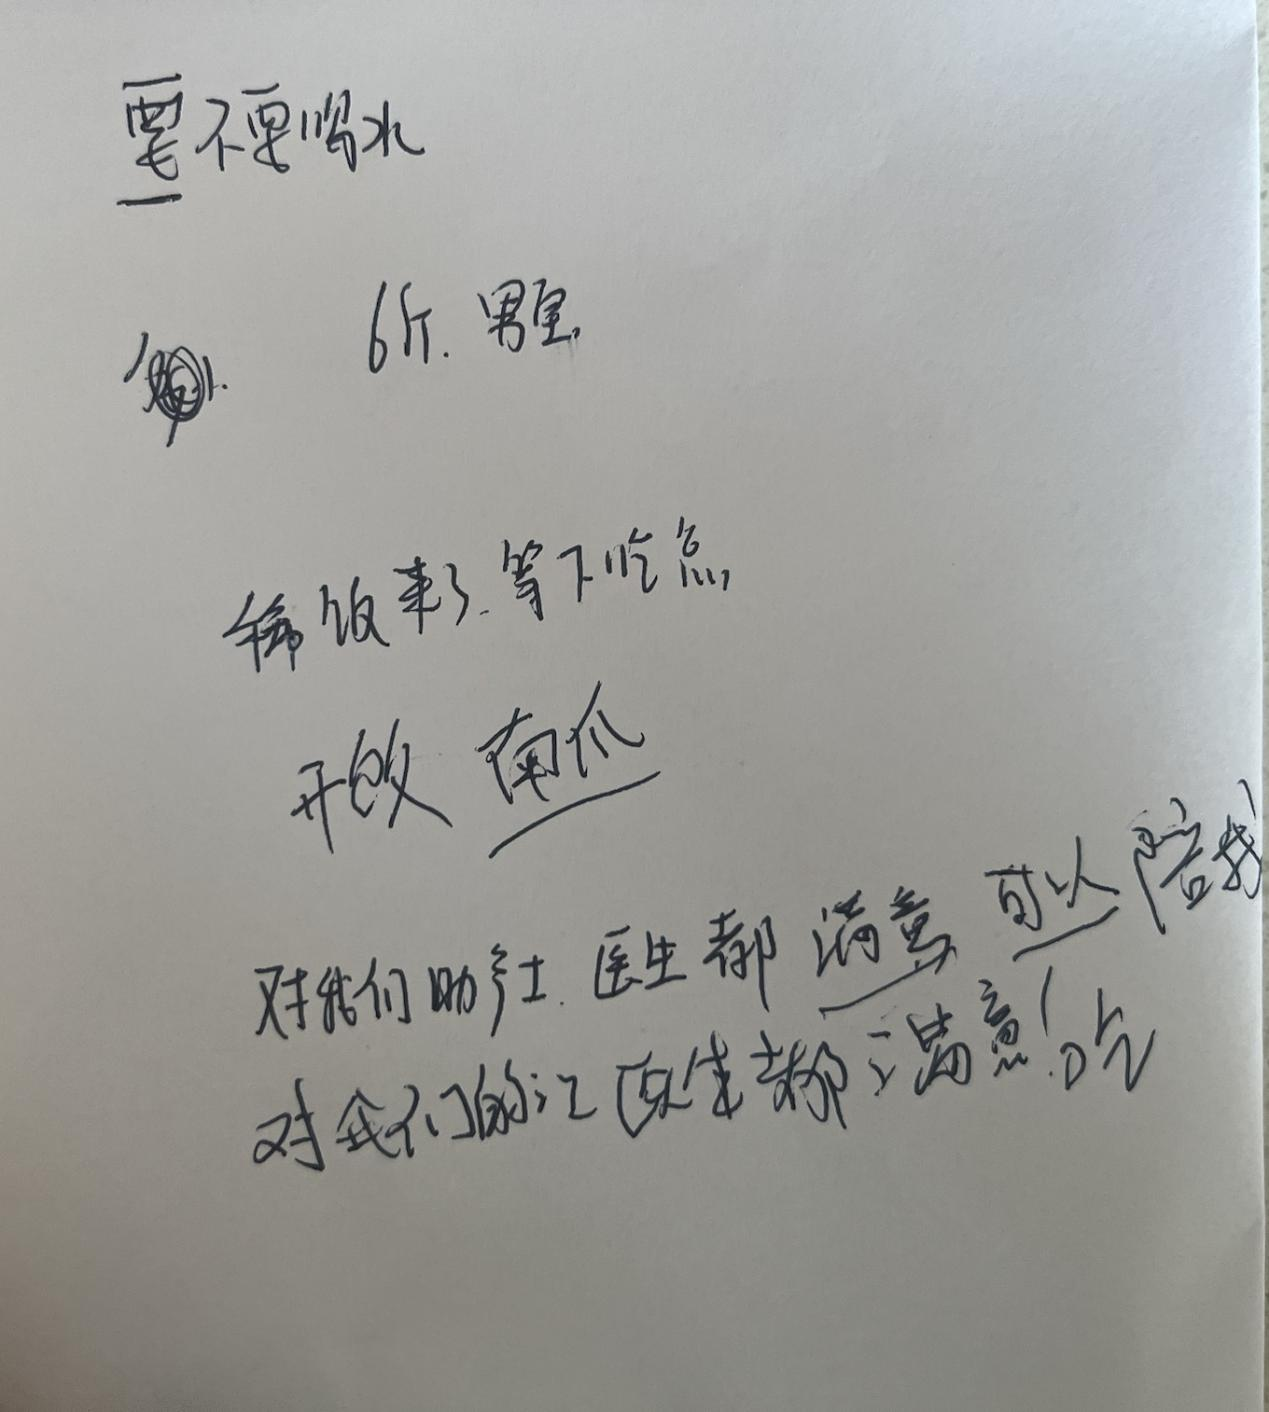 要不要喝水
6斤.男宝.
稀饭来了.等下吃点
开的 南瓜
对我们助产士.医生都满意 可以陪我
对我们的 医生都满意!吃